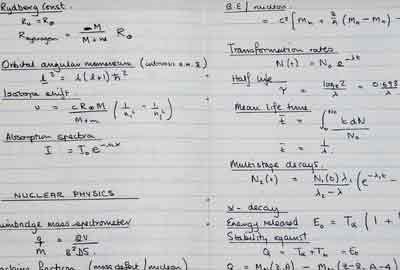 Rydberg Const.
R∞ = R∞
R Hydrogen = M / M+m R∞
Orbital angular momentum
l² = l(l+1)ħ²
Isotope shift.
υ = cR∞M / M+m (1/n₁² - 1/n₂²)
Absorption spectra
I = I₀e
NUCLEAR PHYSICS
mass spectrometer
q/m =
(mass defect / nucleon)
B.E / nucleon
= c² [Mn + Z/A (MH - Mn) -
Transformation rates
N(t) = N₀ e^-λt
Half life
τ = loge2 / λ = 0.693
Mean life time
t̄ = ∫ t dN / N₀
t̄ = 1/λ
Multistage decays.
N₂(t) = N₁(0) λ₁ / λ₂ - λ₁ (e^-λ₁t -
α - decay
Energy released E₀ = Tα (1 +
Stability against
Q = Tα + Th = E₀